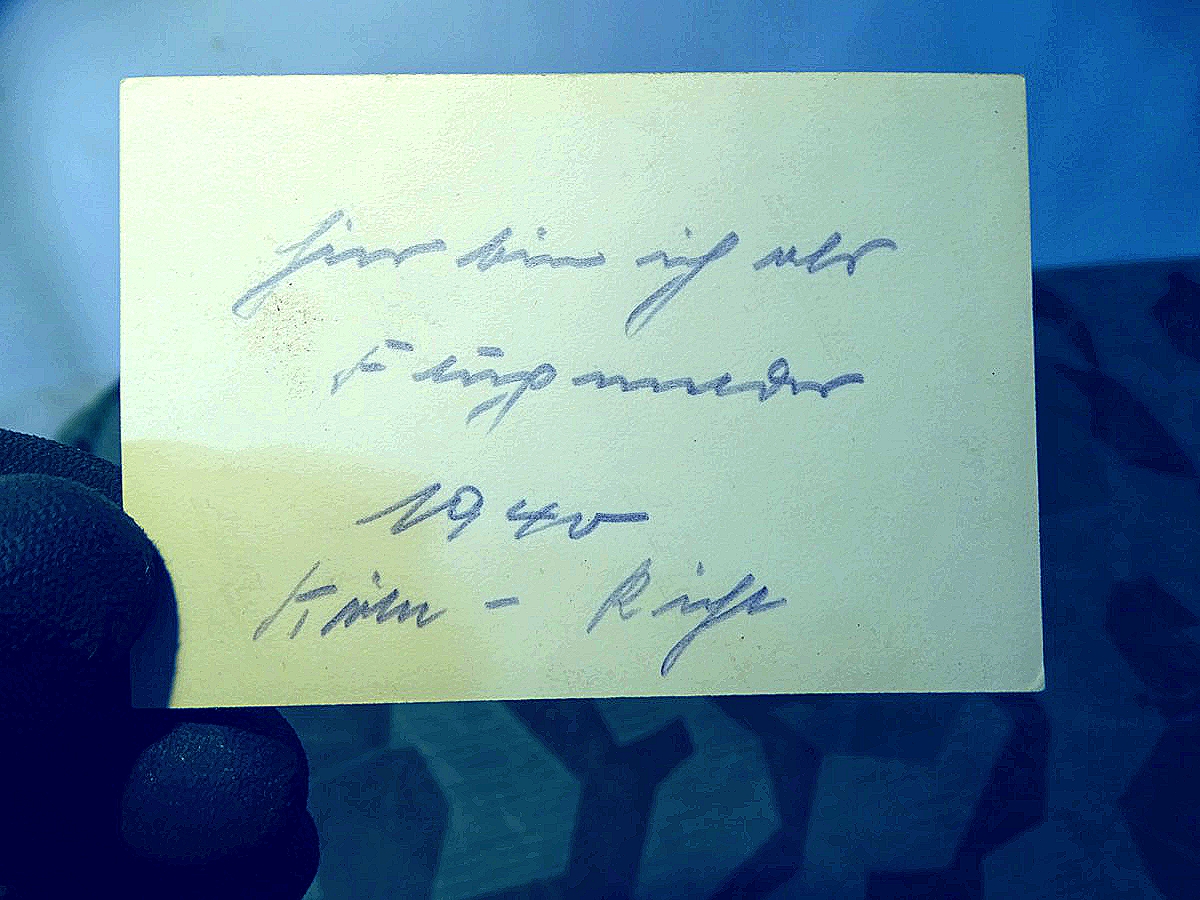 hier bin ich als
1940
Köln - Riehl